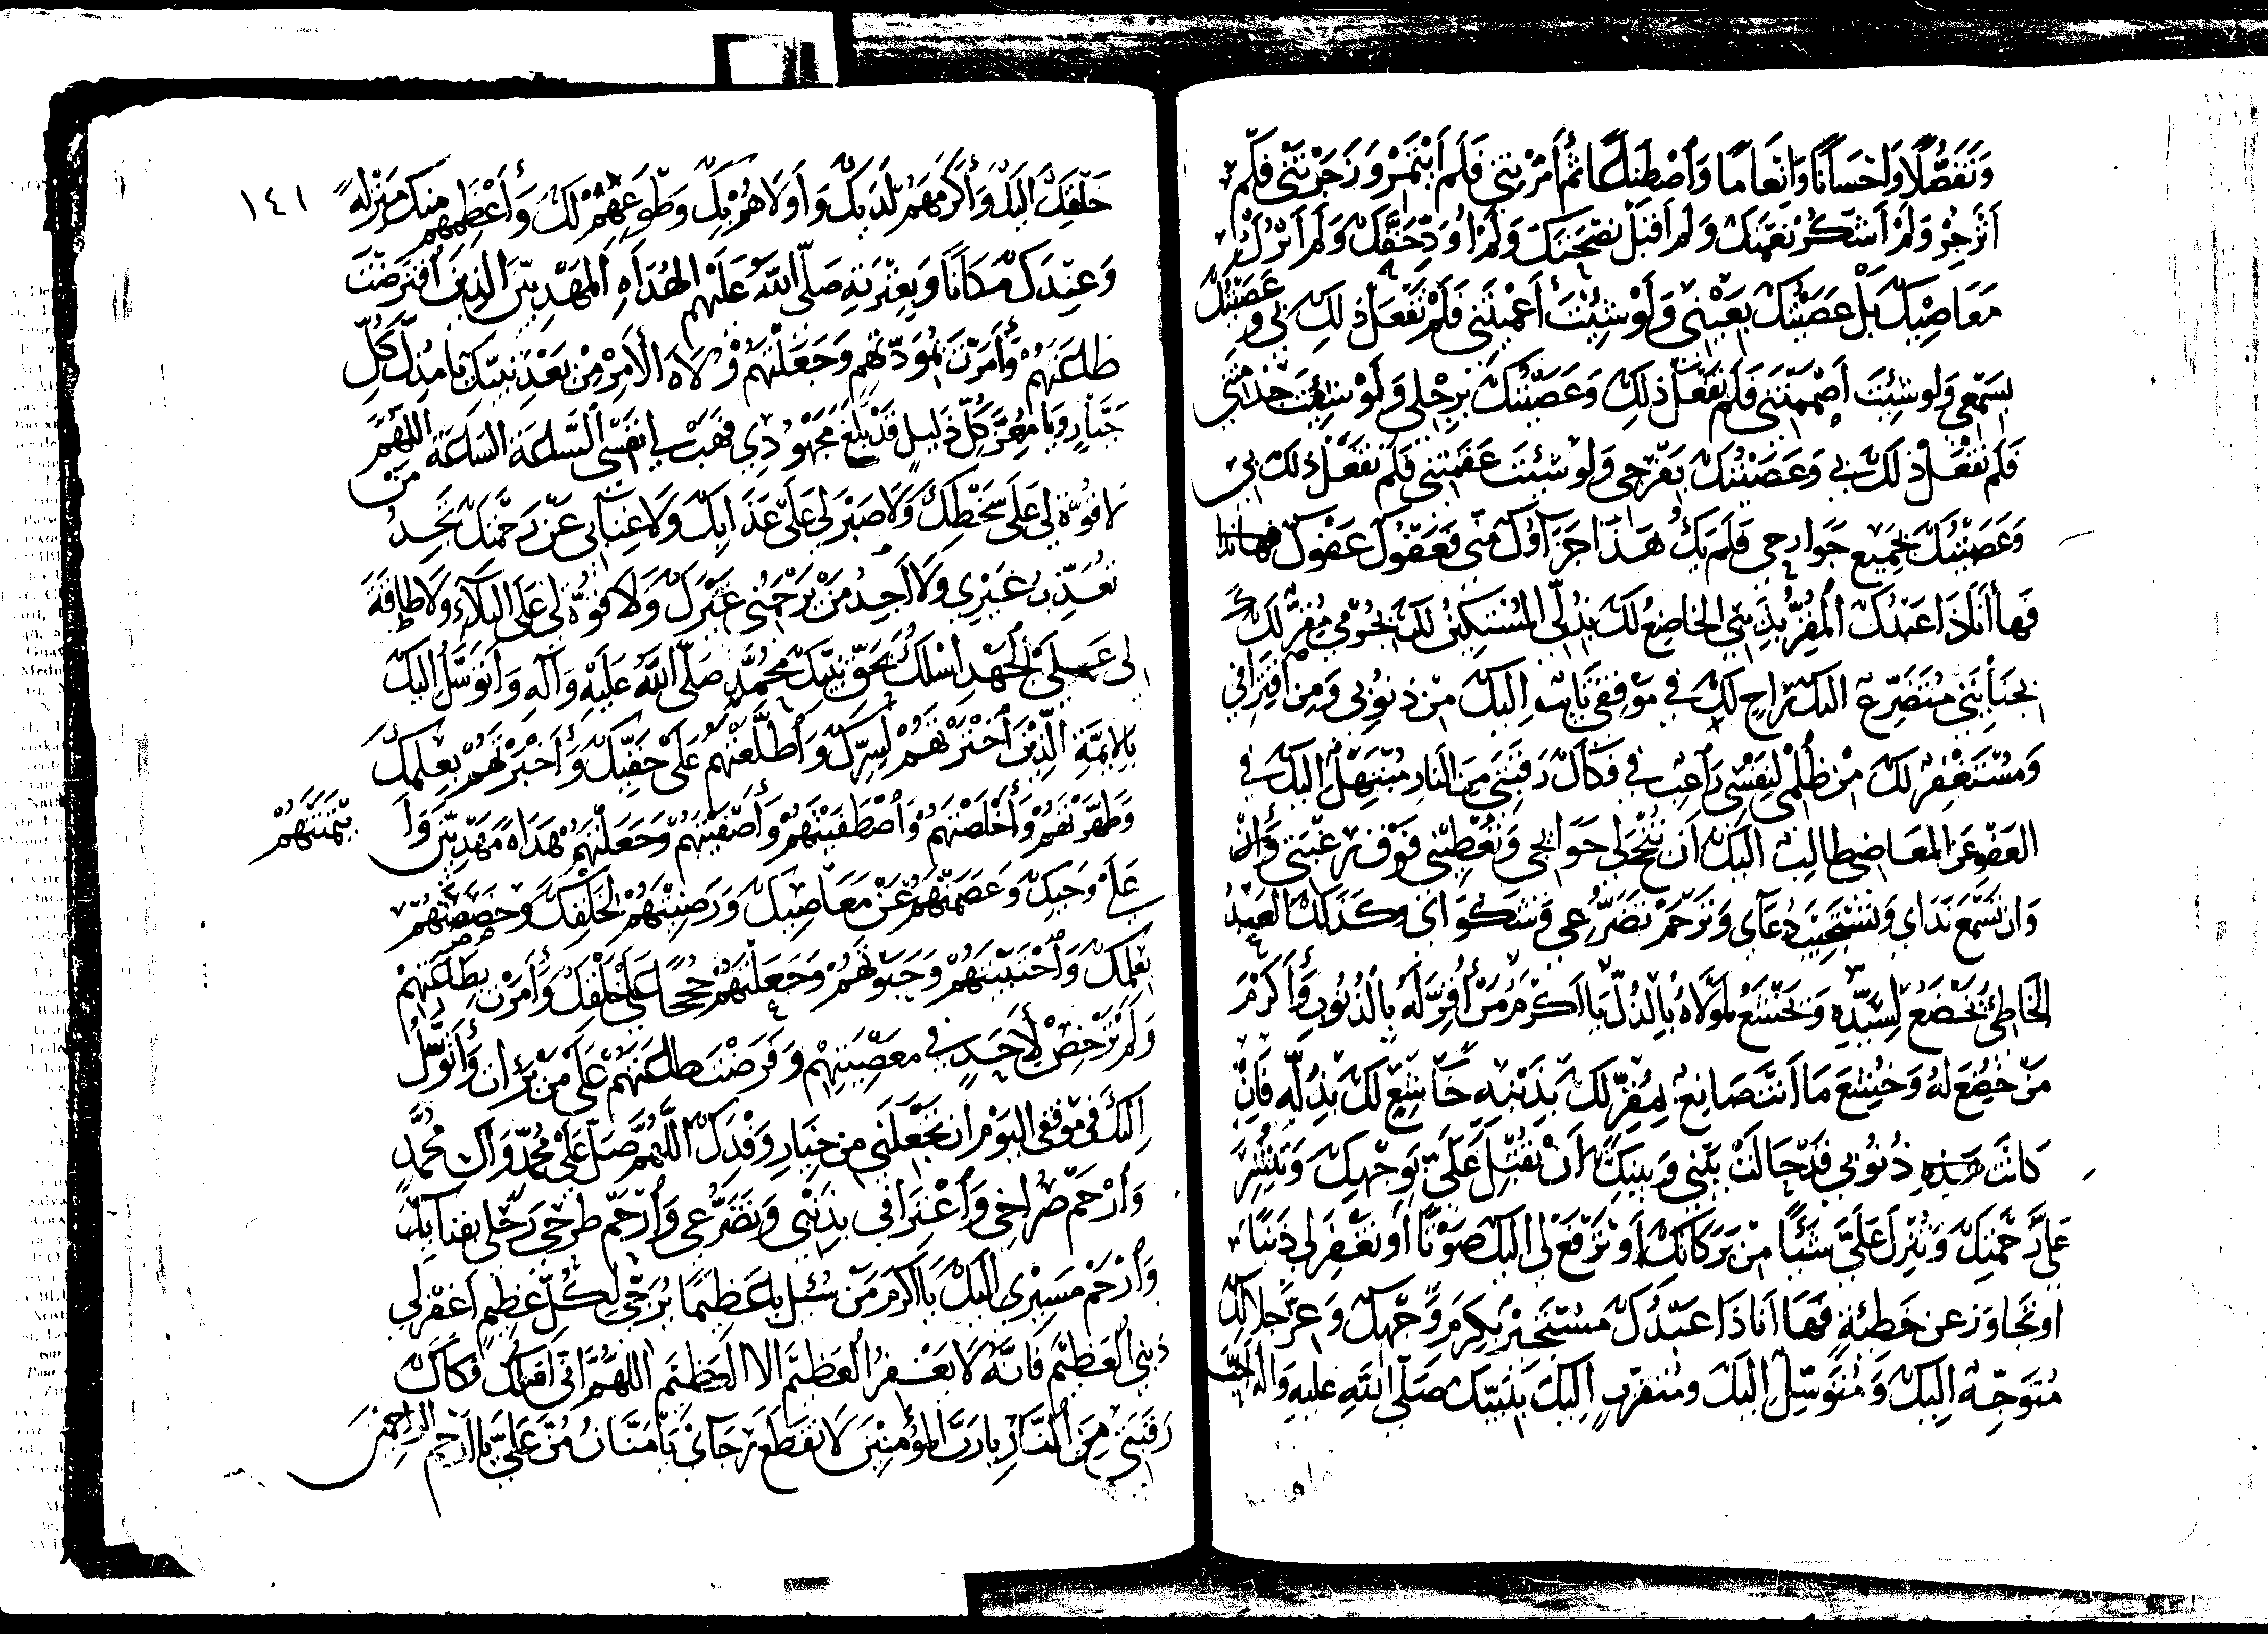 وَتَفَضُّلًا وَاِحْسَانًا وَاِنْعَامًا وَاَصْطِنَاعًا ثُمَّ أَمَرْتَنِي فَلَمْ أَئْتَمِرْ وَزَجَرْتَنِي فَلَمْ
اَنْزَجِرْ وَلَمْ اَشْكُرْ نِعْمَتَكَ وَلَمْ اَقْبَلْ نَصِيحَتَكَ وَلَمْ اُؤَدِّ حَقَّكَ وَلَمْ اَتْرُكْ
مَعَاصِيَكَ بَلْ عَصَيْتُكَ بِعَيْنِي وَلَوْ شِئْتَ أَعْمَيْتَنِي فَلَمْ تَفْعَلْ ذٰلِكَ بِي وَعَصَيْتُكَ
بِسَمْعِي وَلَو شِئْتَ اَصْمَمْتَنِي فَلَمْ تَفْعَلْ ذٰلِكَ وَعَصَيْتُكَ بِرِجْلِي وَلَوْ شِئْتَ جَذَمْتَنِي
فَلَمْ تَفْعَلْ ذٰلِكَ بِي وَعَصَيْتُكَ بِفَرْجِي وَلَو شِئْتَ عَقَمْتَنِي فَلَمْ تَفْعَلْ ذٰلِكَ بِي
وَعَصَيْتُكَ بِجَمِيعِ جَوَارِحِي فَلَمْ يَكُ هٰذَا جَزَاؤُكَ مِنِّي فَعَفْوَكَ عَفْوَكَ
فَهَا أَنَاذَا عَبْدُكَ الْمُقِرُّ بِذَنْبِي الخَاضِعُ لَكَ بِذُلِّي الْمُسْتَكِينُ لَكَ بِجُرْمِي مُقِرٌّ لَكَ
بِجِنَايَتِي مُتَضَرِّعٌ اِلَيْكَ رَاجٍ لَكَ فِي مَوْقِفِي تَائِبٌ اِلَيْكَ مِنْ ذُنُوبِي وَمِنْ اقْتِرَافِي
وَمُسْتَغْفِرٌ لَكَ مِنْ ظُلْمِي لِنَفْسِي رَاغِبٌ فِي فَكَاكَ رَقَبَتِي مِنَ النَّارِ مُبْتَهِلٌ اِلَيْكَ فِي
العَفْوِ عَنِ المَعَاصِي طَالِبٌ اِلَيْكَ اَنْ تُنْجِحَ لِي حَوَائِجِي وَتُعْطِيَنِي فَوْقَ رَغْبَتِي وَاَنْ
وَاَنْ تَسْمَعَ نِدَاي وَتَسْتَجِيبَ دُعَاي وَتَرْحَمَ تَضَرُّعِي وَشَكْوَاي وَكَذٰلِكَ العَبْدُ
الخَاطِئُ يَخْضَعُ لِسَيِّدِهِ وَيَخْشَعُ لِمَوْلَاهُ بِالذُّلِّ يَا اَكْرَمَ مَنْ أُقِرَّ لَهُ بِالذُّنُوبِ وَأَكْرَمَ
مَنْ خُضِعَ لَهُ وَخُشِعَ مَا اَنْتَ صَانِعٌ بِمُقِرٍّ لَكَ بِذَنْبِهِ خَاشِعٍ لَكَ بِذُلِّهِ فَاِنْ
كَانَتْ ذُنُوبِي قَدْ حَالَتْ بَيْنِي وَبَيْنَكَ اَنْ تُقْبِلَ عَلَيَّ بِوَجْهِكَ وَتَنْشُرَ
عَلَيَّ رَحْمَتَكَ وَتُنْزِلَ عَلَيَّ شَيْئًا مِنْ بَرَكَاتِكَ اَوْ تَرْفَعَ لِي اِلَيْكَ صَوْتًا اَو تَغْفِرَ لِي ذَنْبًا
اَو تَجَاوَزَ عَنْ خَطِيئَةٍ فَهَا اَنَاذَا عَبْدُكَ مُسْتَجِيرٌ بِكَرَمِ وَجْهِكَ وَعِزِّ جَلَالِكَ
مُتَوَجِّهٌ اِلَيْكَ وَمُتَوَسِّلٌ اِلَيْكَ وَمُتَقَرِّبٌ اِلَيْكَ بِنَبِيِّكَ صَلَّى اللهُ عَلَيْهِ وَآلِهِ اَحَبِّ
١٤١
خَلْقِكَ اِلَيْكَ وَأَكْرَمِهِمْ لَدَيْكَ وَأَوْلَاهُمْ بِكَ وَطْوَعِهِمْ لَكَ وَأَعْظَمِهِمْ مِنْكَ مَنْزِلَةً
وَعِنْدَكَ مَكَانًا وَبِعِتْرَتِهِ صَلَّى اللهُ عَلَيْهِمُ الْهُدَاةِ الْمَهْدِيِّينَ الَّذِينَ افْتَرَضْتَ
طَاعَتَهُمْ وَأَمَرْتَ بِمَوَدَّتِهِمْ وَجَعَلْتَهُمْ وُلَاةَ الأَمْرِ مِنْ بَعْدِ نَبِيِّكَ يَا مُذِلَّ كُلِّ
جَبَّارٍ وَيَا مُعِزَّ كُلِّ ذَلِيلٍ قَدْ بَلَغَ مَجْهُودِي فَهَبْ لِي نَفْسِي السَّاعَةَ السَّاعَةَ اللّٰهُمَّ
لَا قُوَّةَ لِي عَلَى سَخَطِكَ وَلَا صَبْرَ لِي عَلَى عَذَابِكَ وَلَا غِنَا بِي عَنْ رَحْمَتِكَ تَجِدُ مَنْ
تُعَذِّبُ غَيْرِي وَلَا اَجِدُ مَنْ يَرْحَمُنِي غَيْرَكَ وَلَا قُوَّةَ لِي عَلَى البَلَاءِ وَلَا طَاقَةَ
لِي عَلَى الجَهْدِ اَسْئَلُكَ بِحَقِّ نَبِيِّكَ مُحَمَّدٍ صَلَّى اللهُ عَلَيْهِ وَآلِهِ وَأَتَوَسَّلُ اِلَيْكَ
بِالأَئِمَّةِ الَّذِينَ اخْتَرْتَهُمْ لِسِرِّكَ وَأَطْلَعْتَهُمْ عَلَى خَفِيِّكَ وَأَخْبَرْتَهُمْ بِعِلْمِكَ
وَطَهَّرْتَهُمْ وَأَخْلَصْتَهُمْ وَاصْطَفَيْتَهُمْ وَأَصْفَيْتَهُمْ وَجَعَلْتَهُمْ هُدَاةً مَهْدِيِّينَ وَأْتَمَنْتَهُمْ
عَلَى وَحْيِكَ وَعَصَمْتَهُمْ عَنْ مَعَاصِيكَ وَرَضِيتَهُمْ لِخَلْقِكَ وَخَصَصْتَهُمْ
بِعِلْمِكَ وَاجْتَبَيْتَهُمْ وَحَبَوْتَهُمْ وَجَعَلْتَهُمْ حُجَجًا عَلَى خَلْقِكَ وَأَمَرْتَ بِطَاعَتِهِمْ
وَلَمْ تُرَخِّصْ لِأَحَدٍ فِي مَعْصِيَتِهِمْ وَفَرَضْتَ طَاعَتَهُمْ عَلَى مَنْ بَرَأْتَ وَأَتَوَسَّلُ
اِلَيْكَ فِي مَوْقِفِي اليَوْمَ اَنْ تَجْعَلَنِي مِنْ خِيَارِ وَفْدِكَ اَللّٰهُمَّ صَلِّ عَلَى مُحَمَّدٍ وَآلِ مُحَمَّدٍ
وَارْحَمْ صُرَاخِي وَاعْتِرَافِي بِذَنْبِي وَتَضَرُّعِي وَارْحَمْ طَرْحِي رَحْلِي بِفِنَائِكَ
وَارْحَمْ مَسِيرِي اِلَيْكَ يَا اَكْرَمَ مَنْ سُئِلَ يَا عَظِيمًا يُرَجَّى لِكُلِّ عَظِيمٍ اِغْفِرْ لِي
ذَنْبِيَ العَظِيمَ فَاِنَّهُ لَا يَغْفِرُ العَظِيمَ اِلَّا العَظِيمُ اَللّٰهُمَّ اِنِّي اَسْئَلُكَ فَكَاكَ
رَقَبَتِي مِنَ النَّارِ يَا رَبَّ المُؤْمِنِينَ لَا تَقْطَعْ رَجَائِي يَا مَنَّانُ مُنَّ عَلَيَّ يَا اَرْحَمَ الرَّاحِمِينَ